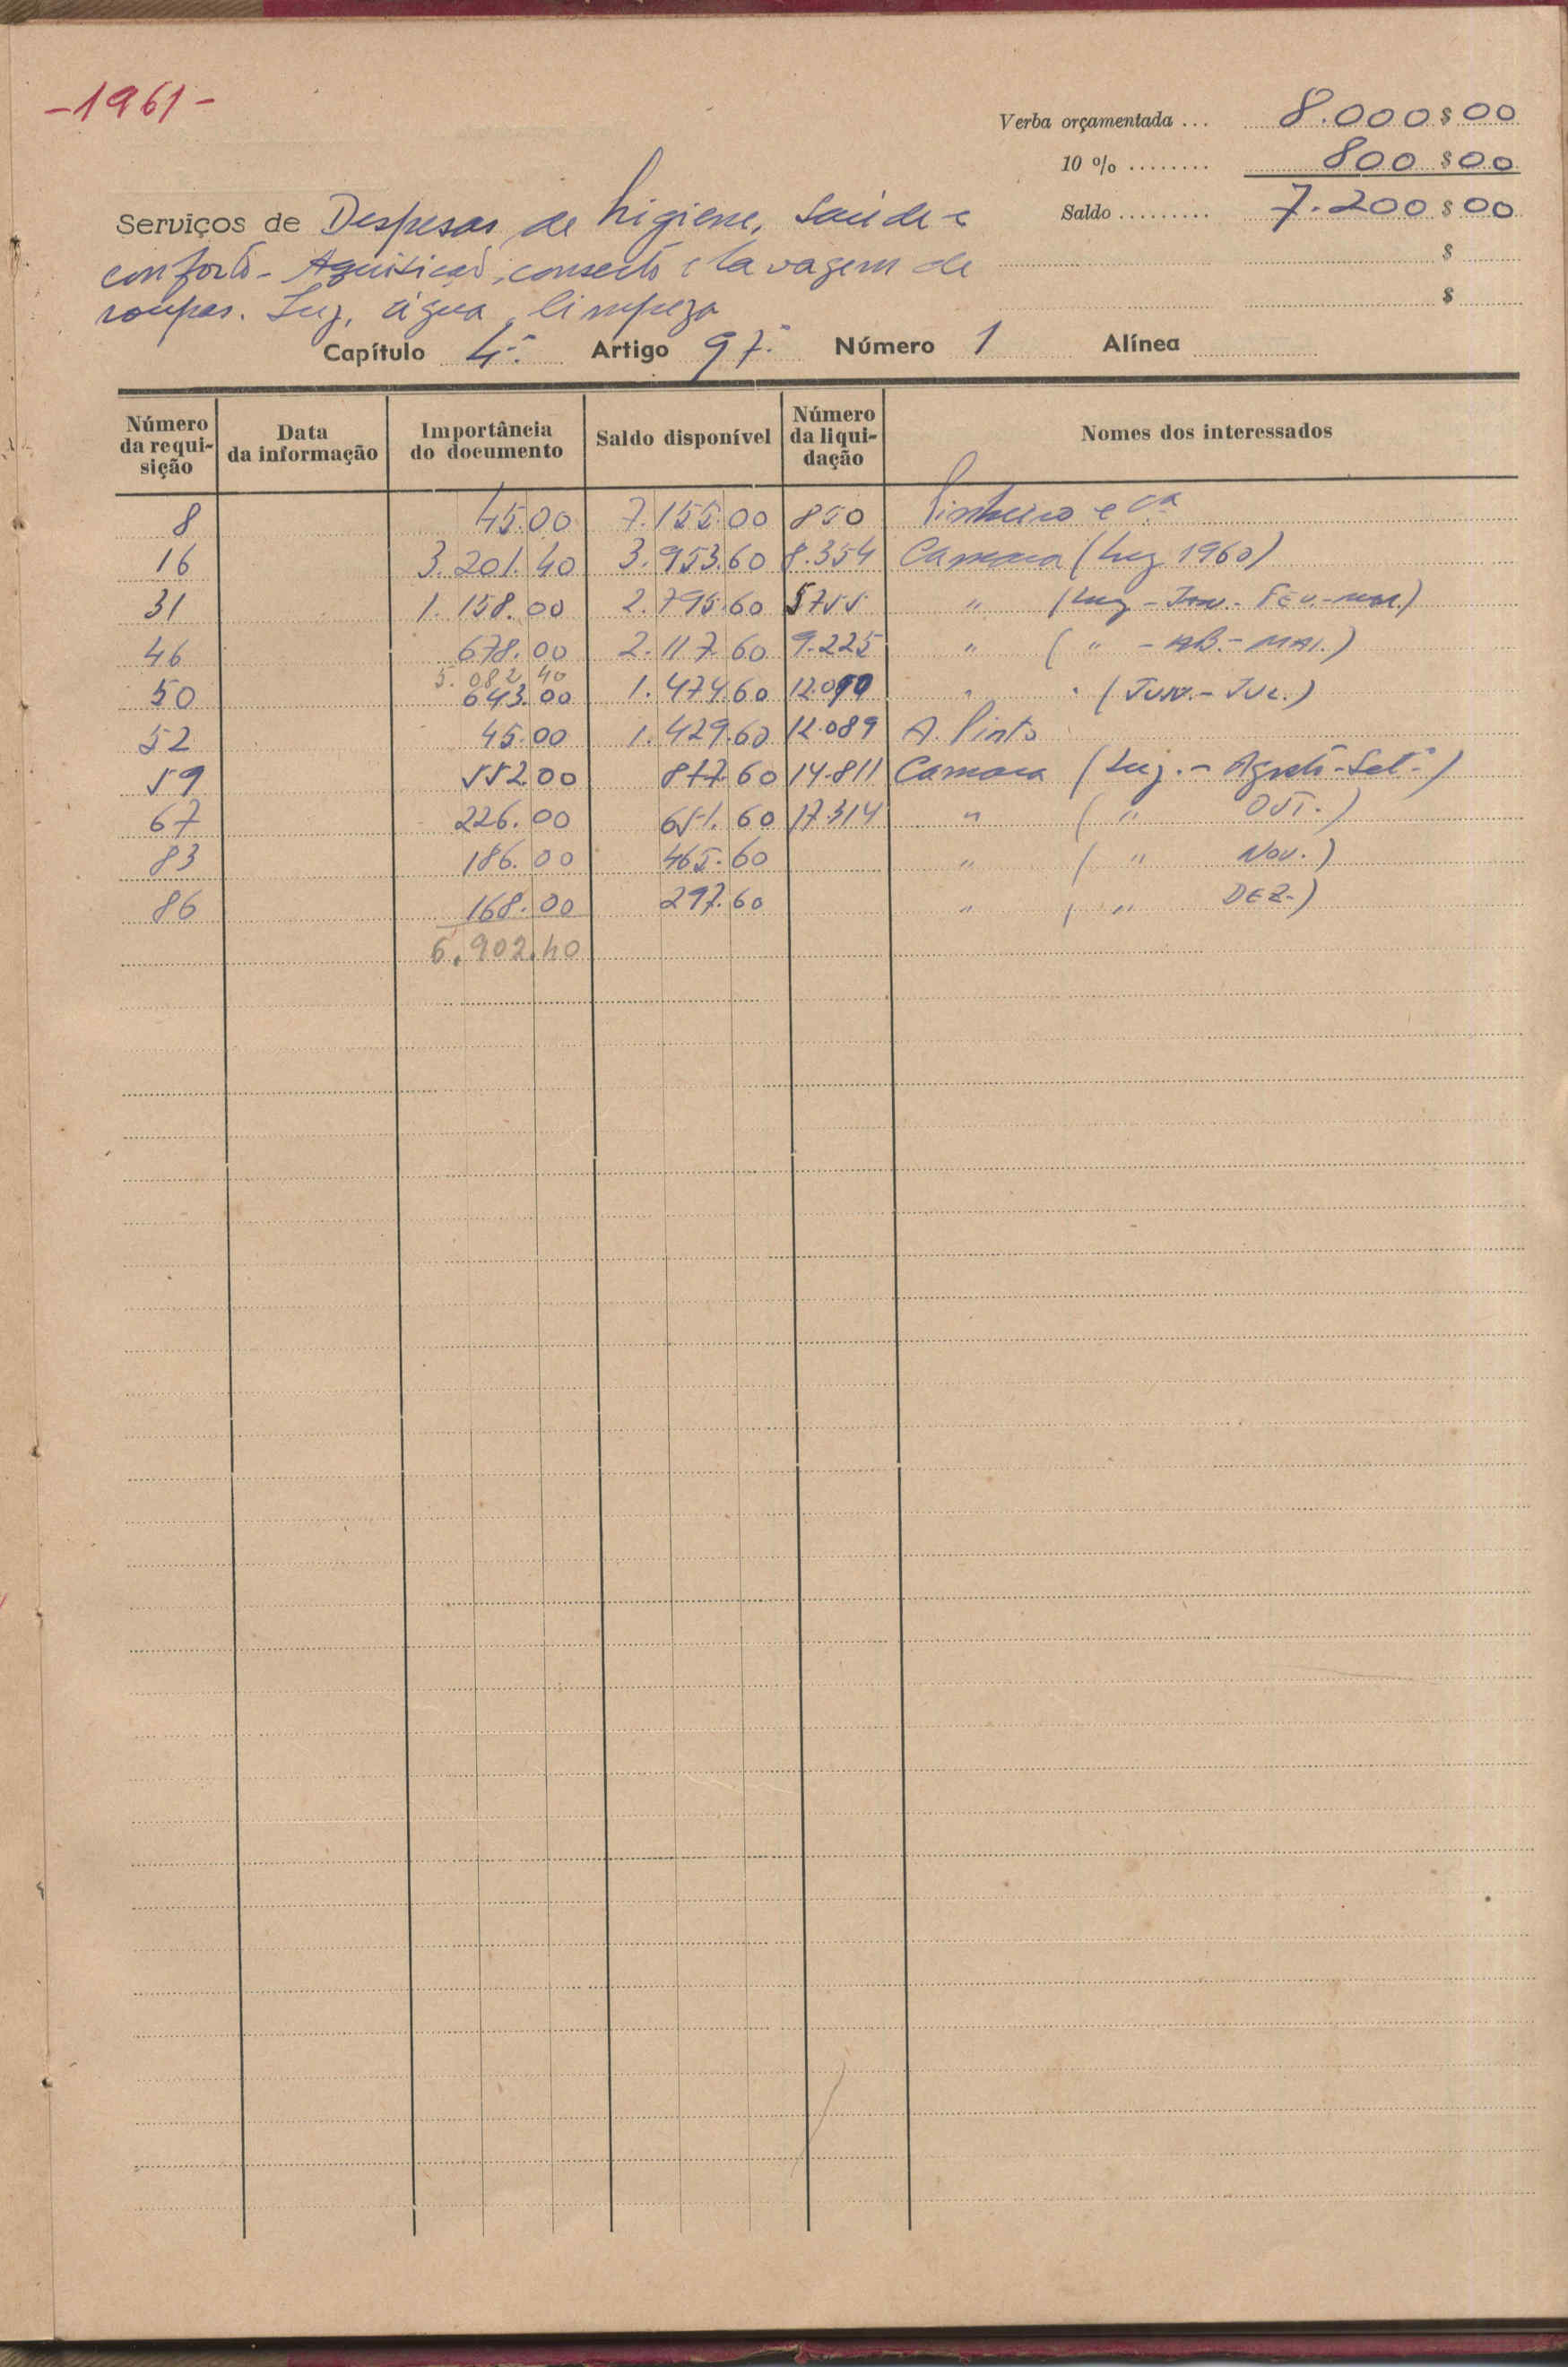 -1961-
Verba orçamentada ... 8.000$00
10 % ........ 800$00
Serviços de Despesas de higiene, saúde e
Saldo ......... 7.200$00
conforto - Aquisição, conserto e lavagem de
$
roupas. Luz, água, limpeza
$
Capítulo 4.º Artigo 97.º Número 1 Alínea
Número da requisição Data da informação Importância do documento Saldo disponível Número da liquidação Nomes dos interessados
8 45.00 7.155.00 850 Pinheiro e Cª
16 3.201.40 3.953.60 8.354 Camara (Luz 1960)
31 1.158.00 2.795.60 5755 " (Luz - Jan. - Fev. - mar.)
46 678.00 2.117.60 9.225 " ( " - AB. - MAI.)
5.082 40
50 643.00 1.474.60 12.090 " " (JUN. - JUL.)
52 45.00 1.429.60 12.089 A. Pinto
59 552 00 877.60 14.811 Camara (Luz. - Agosto - Setº)
67 226.00 651.60 17.314 " ( " OUT.)
83 186.00 465.60 " ( " Nov.)
86 168.00 297.60 " ( " DEZ.)
6.902.40